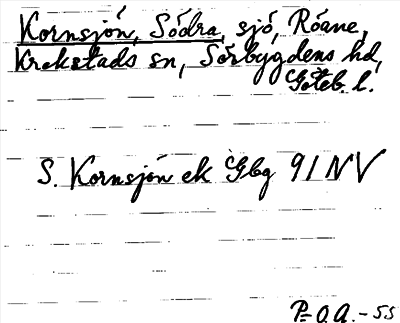 Kornsjón, Södra, sjó, Róane,
Krokstads sn, Sörbygdens hd,
Göteb. l.
S. Kornsjón ek Gbg 91 NV
P-O.A.-55